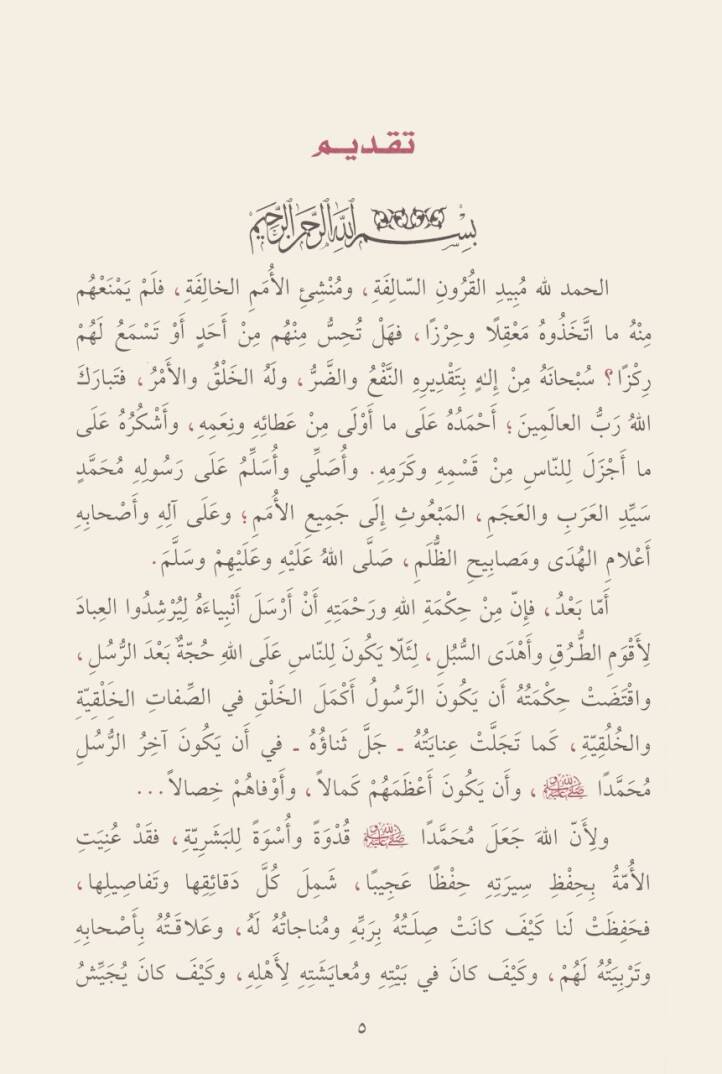 تقديم
بِسْمِ اللهِ الرَّحْمَنِ الرَّحِيمِ
الحمد لله مُبِيدِ القُرُونِ السّالِفَةِ، ومُنْشِئِ الأُمَمِ الخالِفَةِ، فلَمْ يَمْنَعْهُم
مِنْهُ ما اتَّخَذُوهُ مَعْقِلًا وحِرْزًا، فهَلْ تُحِسُّ مِنْهُم مِنْ أَحَدٍ أَوْ تَسْمَعُ لَهُمْ
رِكْزًا؟ سُبْحانَهُ مِنْ إِلـٰهٍ بِتَقْدِيرِهِ النَّفْعُ والضَّرُّ، ولَهُ الخَلْقُ والأَمْرُ، فتَبارَكَ
اللهُ رَبُّ العالَمِينَ؛ أَحْمَدُهُ عَلَى ما أَوْلَى مِنْ عَطائِهِ ونِعَمِهِ، وأَشْكُرُهُ عَلَى
ما أَجْزَلَ لِلنّاسِ مِنْ قَسْمِهِ وكَرَمِهِ. وأُصَلِّي وأُسَلِّمُ عَلَى رَسُولِهِ مُحَمَّدٍ
سَيِّدِ العَرَبِ والعَجَمِ، المَبْعُوثِ إِلَى جَمِيعِ الأُمَمِ؛ وعَلَى آلِهِ وأَصْحابِهِ
أَعْلامِ الهُدَى ومَصابِيحِ الظُّلَمِ، صَلَّى اللهُ عَلَيْهِ وعَلَيْهِمْ وسَلَّمَ.
أَمّا بَعْدُ، فإِنّ مِنْ حِكْمَةِ اللهِ ورَحْمَتِهِ أَنْ أَرْسَلَ أَنْبِياءَهُ لِيُرْشِدُوا العِبادَ
لِأَقْوَمِ الطُّرُقِ وأَهْدَى السُّبُلِ، لِئَلّا يَكُونَ لِلنّاسِ عَلَى اللهِ حُجّةٌ بَعْدَ الرُّسُلِ،
واقْتَضَتْ حِكْمَتُهُ أَن يَكُونَ الرَّسُولُ أَكْمَلَ الخَلْقِ في الصِّفاتِ الخَلْقِيّةِ
والخُلُقِيّةِ، كَما تَجَلَّتْ عِنايَتُهُ ـ جَلَّ ثَناؤُهُ ـ في أَن يَكُونَ آخِرُ الرُّسُلِ
مُحَمَّدًا ﷺ، وأَن يَكُونَ أَعْظَمَهُمْ كَمالاً، وأَوْفاهُمْ خِصالاً...
ولِأَنّ اللهَ جَعَلَ مُحَمَّدًا ﷺ قُدْوَةً وأُسْوَةً لِلبَشَرِيّةِ، فقَدْ عُنِيَتِ
الأُمّةُ بِحِفْظِ سِيرَتِهِ حِفْظًا عَجِيبًا، شَمِلَ كُلَّ دَقائِقِها وتَفاصِيلِها،
فحَفِظَتْ لَنا كَيْفَ كانَتْ صِلَتُهُ بِرَبِّهِ ومُناجاتُهُ لَهُ، وعَلاقَتُهُ بِأَصْحابِهِ
وتَرْبِيَتُهُ لَهُمْ، وكَيْفَ كانَ في بَيْتِهِ ومُعايَشَتِهِ لِأَهْلِهِ، وكَيْفَ كانَ يُجَيِّشُ
٥